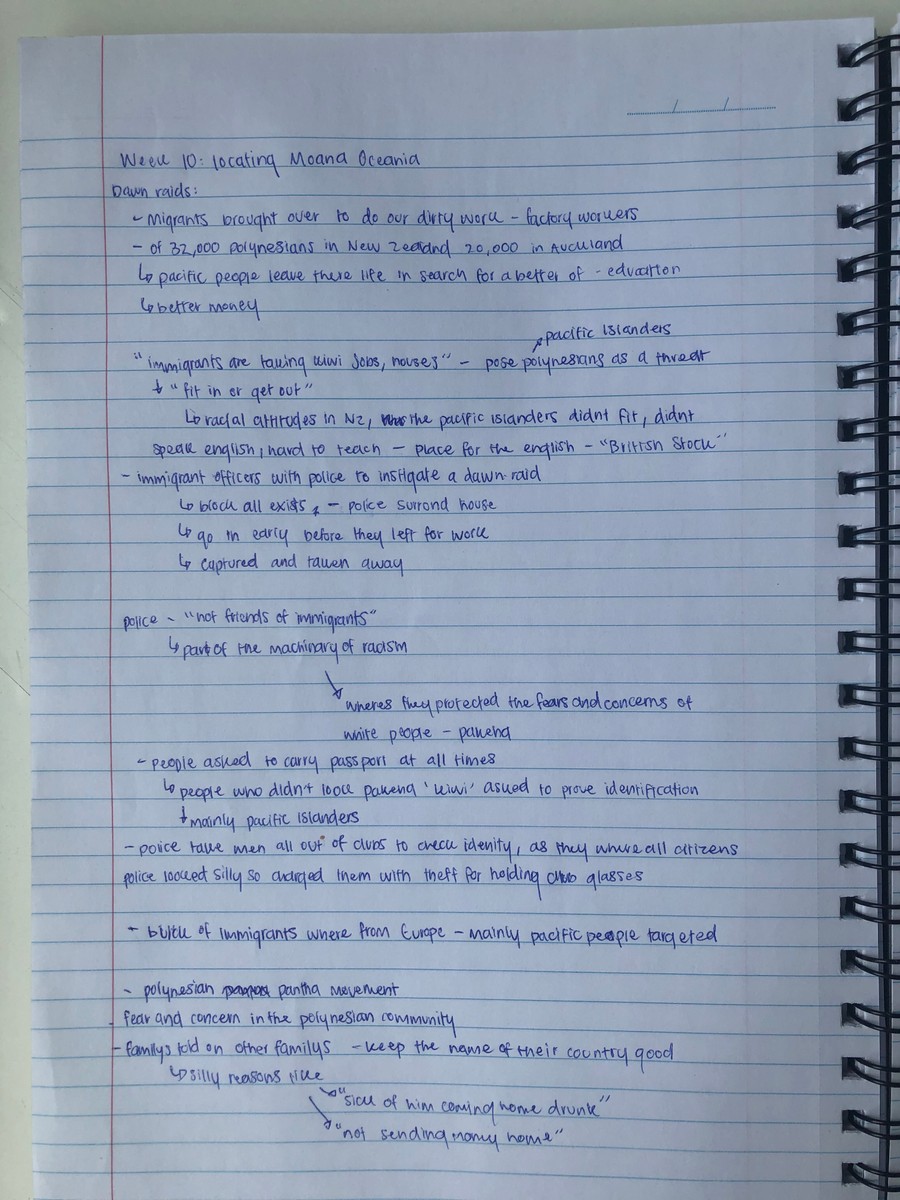 Week 10: locating Moana Oceania
Dawn raids:
- Migrants brought over to do our dirty work - factory workers
- of 32,000 polynesians in New Zealand 20,000 in Auckland
↳ pacific people leave there life in search for a better of - education
↳ better money
pacific Islanders
"immigrants are taking kiwi jobs, houses" - pose polynesians as a threat
↓ "fit in or get out"
↳ racial attitudes in NZ, the pacific islanders didnt fit, didnt
speak english, hard to teach - place for the english - "British Stock"
- immigrant officers with police to instigate a dawn raid
↳ block all exists, - police surrond house
↳ go in early before they left for work
↳ captured and taken away
police - "not friends of immigrants"
↳ part of the machinary of racism
↘ wheres they protected the fears and concerns of
white people - pakeha
- people asked to carry passport at all times
↳ people who didn't look pakeha 'kiwi' asked to prove identification
↓ mainly pacific islanders
- police take men all out of clubs to check idenity, as they where all citizens
police looked silly so charged them with theft for holding club glasses
- bulk of immigrants where from Europe - mainly pacific people targeted
- polynesian pantha movement
fear and concern in the polynesian community
- familys told on other familys - keep the name of their country good
↳ silly reasons like
↘ "sick of him coming home drunk"
↘ "not sending money home"